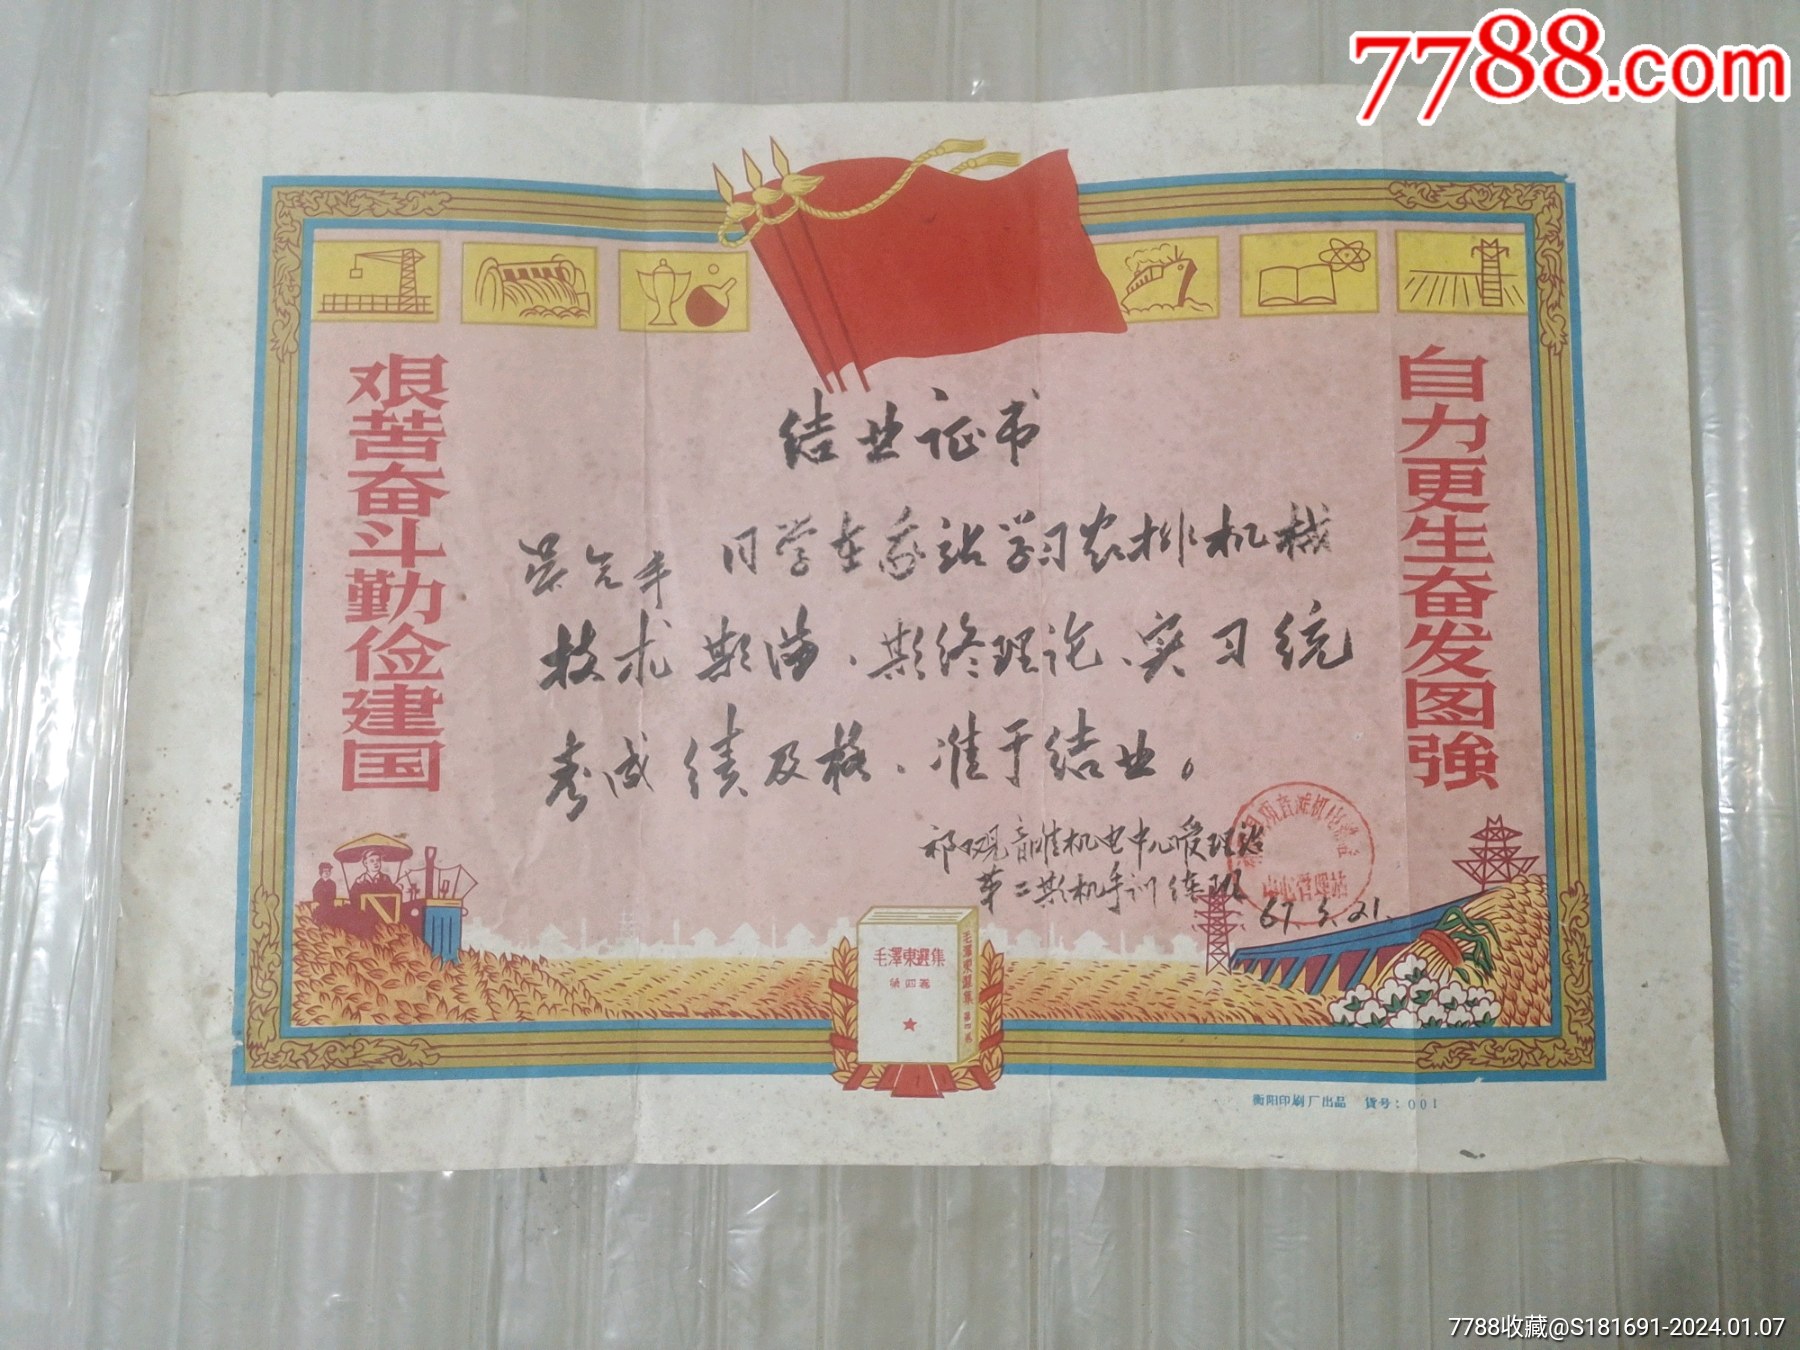 7788.com
自力更生奋发图強
艰苦奋斗勤俭建国
结业证书
同学在我站学习农排机械
技术期满、期终理论、实习统
考成绩及格、准于结业。
祁 观音滩机电中心管理站
第二期机手训练班
67 3.21.
中心管理站
毛澤東選集
第四卷
毛澤東選集 第四卷
衡阳印刷厂出品 货号：001
7788收藏@S181691-2024.01.07